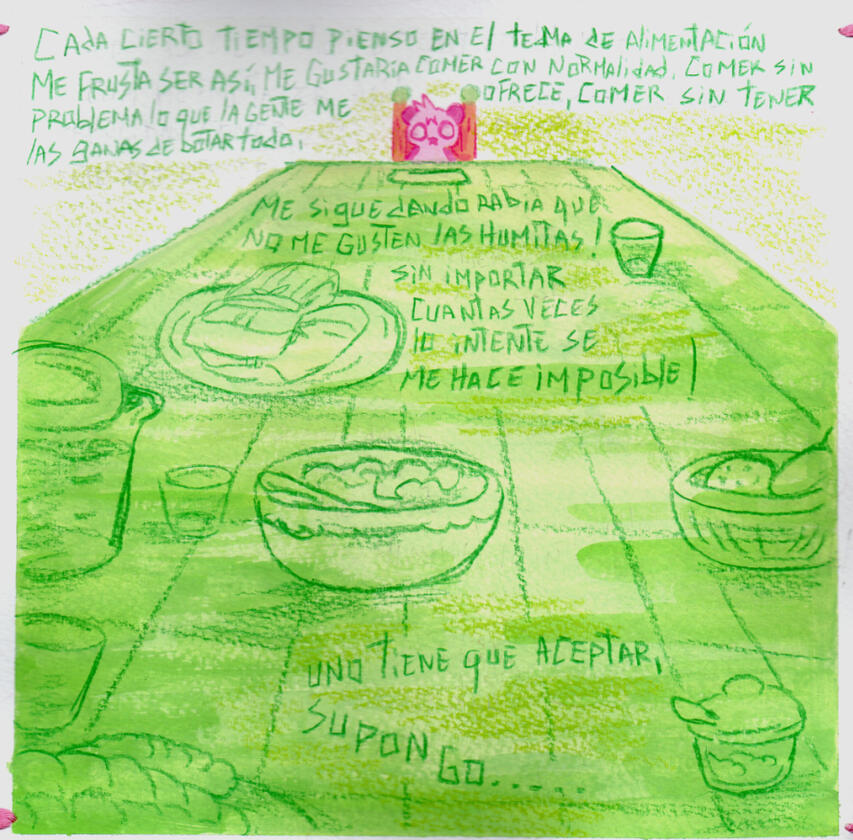 CADA CIERTO TIEMPO PIENSO EN El TEMA DE AlIMENTACIÓN
ME FRUSTA SER ASÍ, ME GUSTARIA COMER CON NORMAlIdAd, COMER SIN
PROblEMA lo QUE lA GENTE ME OFRECE, COMER SIN TENER
lAS gANAS dE bOTAR TOdo.
ME SIGUE dANdO RAbIA QUE
NO ME GUSTEN lAS HUMITAS!
SIN IMPORTAR
CUANTAS VECES
lO INTENTE SE
ME HACE IMPOSIblE!
UNO TIENE QUE ACEPTAR,
SUPONGO......